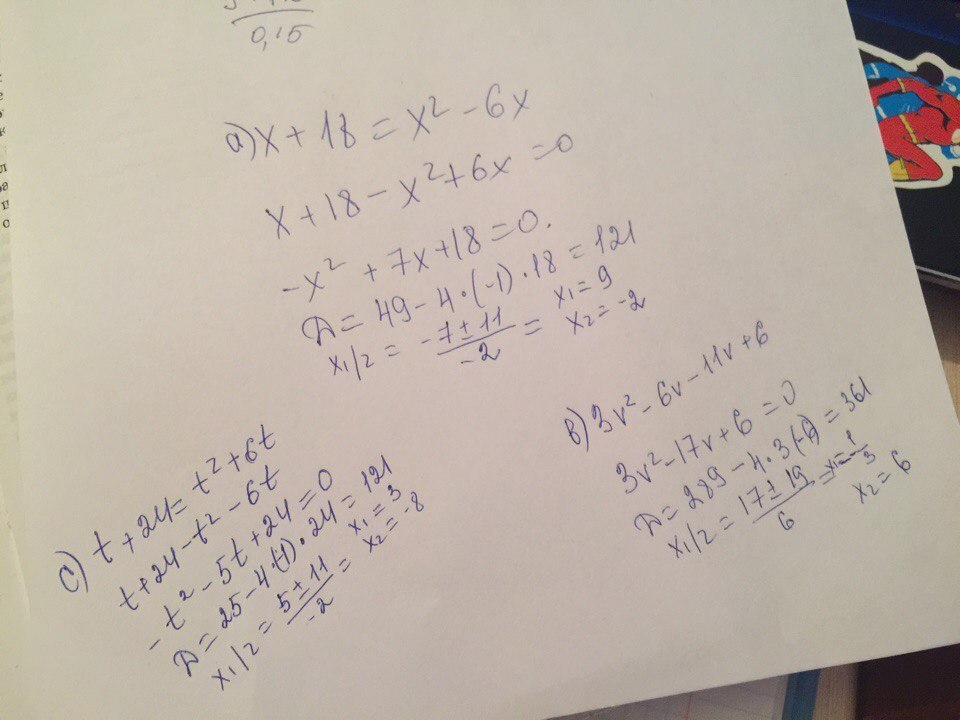 0,15
a) x + 18 = x² - 6x
x + 18 - x² + 6x = 0
-x² + 7x + 18 = 0.
D = 49 - 4·(-1)·18 = 121
x1/2 = (-7 ± 11)/-2 = x1 = 9
x2 = -2
в) 3v² - 6v - 11v + 6
3v² - 17v + 6 = 0
x1/2 = (17 ± 19)/6 = x1 = -1/3
x2 = 6
c) t + 24 = t² + 6t
t + 24 - t² - 6t
-t² - 5t + 24 = 0
D = 25 - 4·(-1)·24 = 121
x1/2 = (5 ± 11)/-2 = x1 = 3
x2 = -8